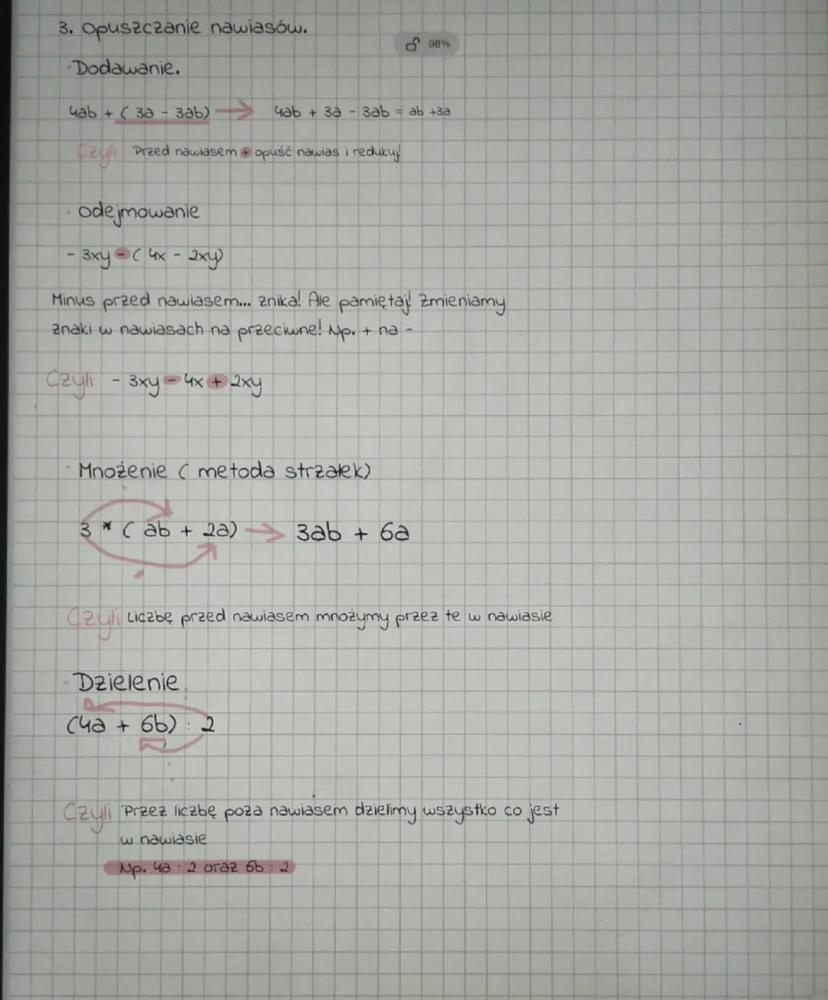 3. Opuszczanie nawiasów.
98%
· Dodawanie.
4ab + ( 3a - 3ab) → 4ab + 3a - 3ab = ab +3a
Czyli Przed nawiasem + opuść nawias i redukuj
· odejmowanie
- 3xy - ( 4x - 2xy)
Minus przed nawiasem... znika! Ale pamiętaj! Zmieniamy
znaki w nawiasach na przeciwne! Np. + na -
Czyli - 3xy - 4x + 2xy
· Mnożenie ( metoda strzałek)
3 * ( ab + 2a) → 3ab + 6a
Czyli Liczbę przed nawiasem mnożymy przez te w nawiasie
· Dzielenie
(4a + 6b) : 2
Czyli Przez liczbę poza nawiasem dzielimy wszystko co jest
w nawiasie
Np. 4a : 2 oraz 6b : 2